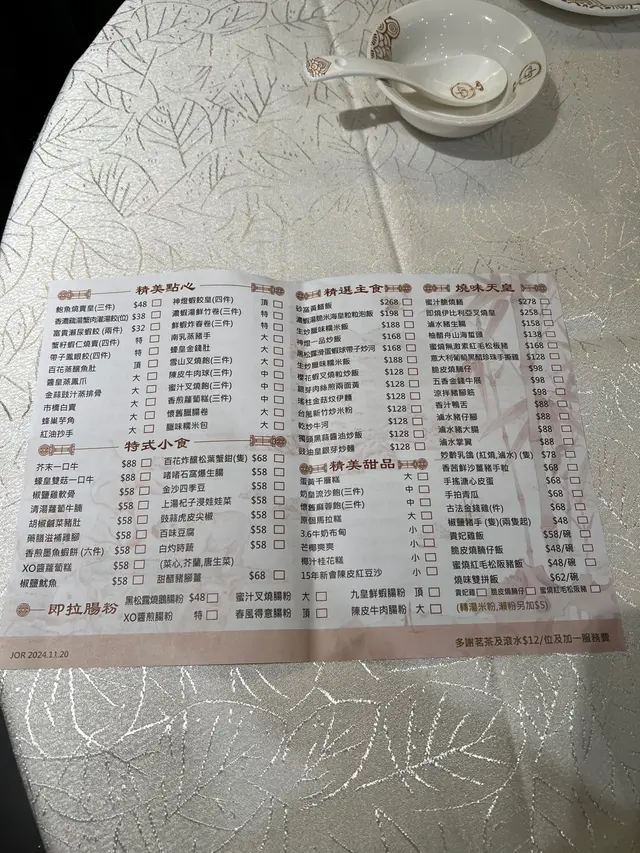 精美點心
鮑魚燒賣皇(三件) $48
香濃龍湯蟹肉灌湯餃(位) $38
富貴瀨尿蝦餃 (兩件) $32
蟹籽蝦仁燒賣(四件) 特
帶子鳳眼餃(四件) 特
百花蒸釀魚肚 頂
醬皇蒸鳳爪 大
金蒜豉汁蒸排骨 大
市橋白賣 大
蜂巢芋角 大
紅油抄手 大
神燈蝦餃皇(四件) 頂
濃蝦湯鮮竹卷(三件) 特
鮮蝦炸春卷(三件) 特
南乳蒸豬手 大
蠔皇金錢肚 大
雪山叉燒飽(三件) 大
陳皮牛肉球(三件) 中
蜜汁叉燒飽(三件) 中
香煎蘿蔔糕(三件) 中
懷舊臘腸卷 大
臘味糯米包 大
特式小食
芥末一口牛 $88
蠔皇雙菇一口牛 $88
椒鹽雞軟骨 $58
清湯蘿蔔牛腩 $58
胡椒鹹菜豬肚 $58
藥膳滋補雞腳 $58
香煎墨魚蝦餅 (六件) $58
XO醬蘿蔔糕 $58
椒鹽魷魚 $58
百花炸釀松葉蟹鉗(隻) $68
啫啫石窩爆生腸 $58
金沙四季豆 $58
上湯杞子浸娃娃菜 $58
豉蒜虎皮尖椒 $58
百味豆腐 $58
白灼時蔬 $58
(菜心,芥蘭,唐生菜)
甜醋豬腳薑 $68
精選主食
砂窩黃鱔飯 $268
濃蝦湯脆米海皇粒粒泡飯 $198
生炒臘味糯米飯 $188
神燈一品炒飯 $168
黑松露滑蛋蝦球帶子炒河 $168
生炒臘味糯米飯 $188
櫻花蝦叉燒粒炒飯 $128
韮芽肉絲煎兩面黃 $128
瑤柱金菇炆伊麵 $128
台風新竹炒米粉 $128
乾炒牛河 $128
獨頭黑蒜醬油炒飯 $128
豉油皇銀芽炒麵 $128
精美甜品
蛋黃千層糕 大
奶皇流沙飽(三件) 中
懷舊麻蓉飽(三件) 中
原個馬拉糕 大
3.6牛奶布甸 小
芒椰爽爽 小
椰汁桂花糕 小
15年新會陳皮紅豆沙 小
燒味天皇
蜜汁脆燒鱔 $278
即燒伊比利亞叉燒皇 $258
滷水豬生腸 $158
柚醋舟山海蜇頭 $138
蜜燒無激素紅毛松板豬 $168
意大利葡萄黑醋珍珠手撕雞 $128
脆皮燒腩仔 $98
五香金錢牛𦟌 $98
涼拌豬腳筋 $98
香汁鴨舌 $88
滷水豬仔腳 $88
滷水豬大腸 $88
滷水掌翼 $88
妙齡乳鴿 (紅燒,滷水) (隻) $78
香茜鮮沙薑豬手粒 $68
手搖溏心皮蛋 $68
手拍青瓜 $68
古法金錢雞(件) $68
椒鹽豬手 (隻)(兩隻起) $48
貴妃雞飯 $58/碗
脆皮燒腩仔飯 $48/碗
蜜燒紅毛松阪豬飯 $48/碗
燒味雙拼飯 $62/碗
貴妃雞 脆皮燒腩仔 蜜燒紅毛松阪豬
(轉湯米粉,瀨粉另加$5)
即拉腸粉
黑松露燒鵝腸粉 $48
XO醬煎腸粉 特
蜜汁叉燒腸粉 大
春風得意腸粉 頂
九皇鮮蝦腸粉 頂
陳皮牛肉腸粉 小
JOR 2024.11.20
多謝茗茶及滾水$12/位及加一服務費